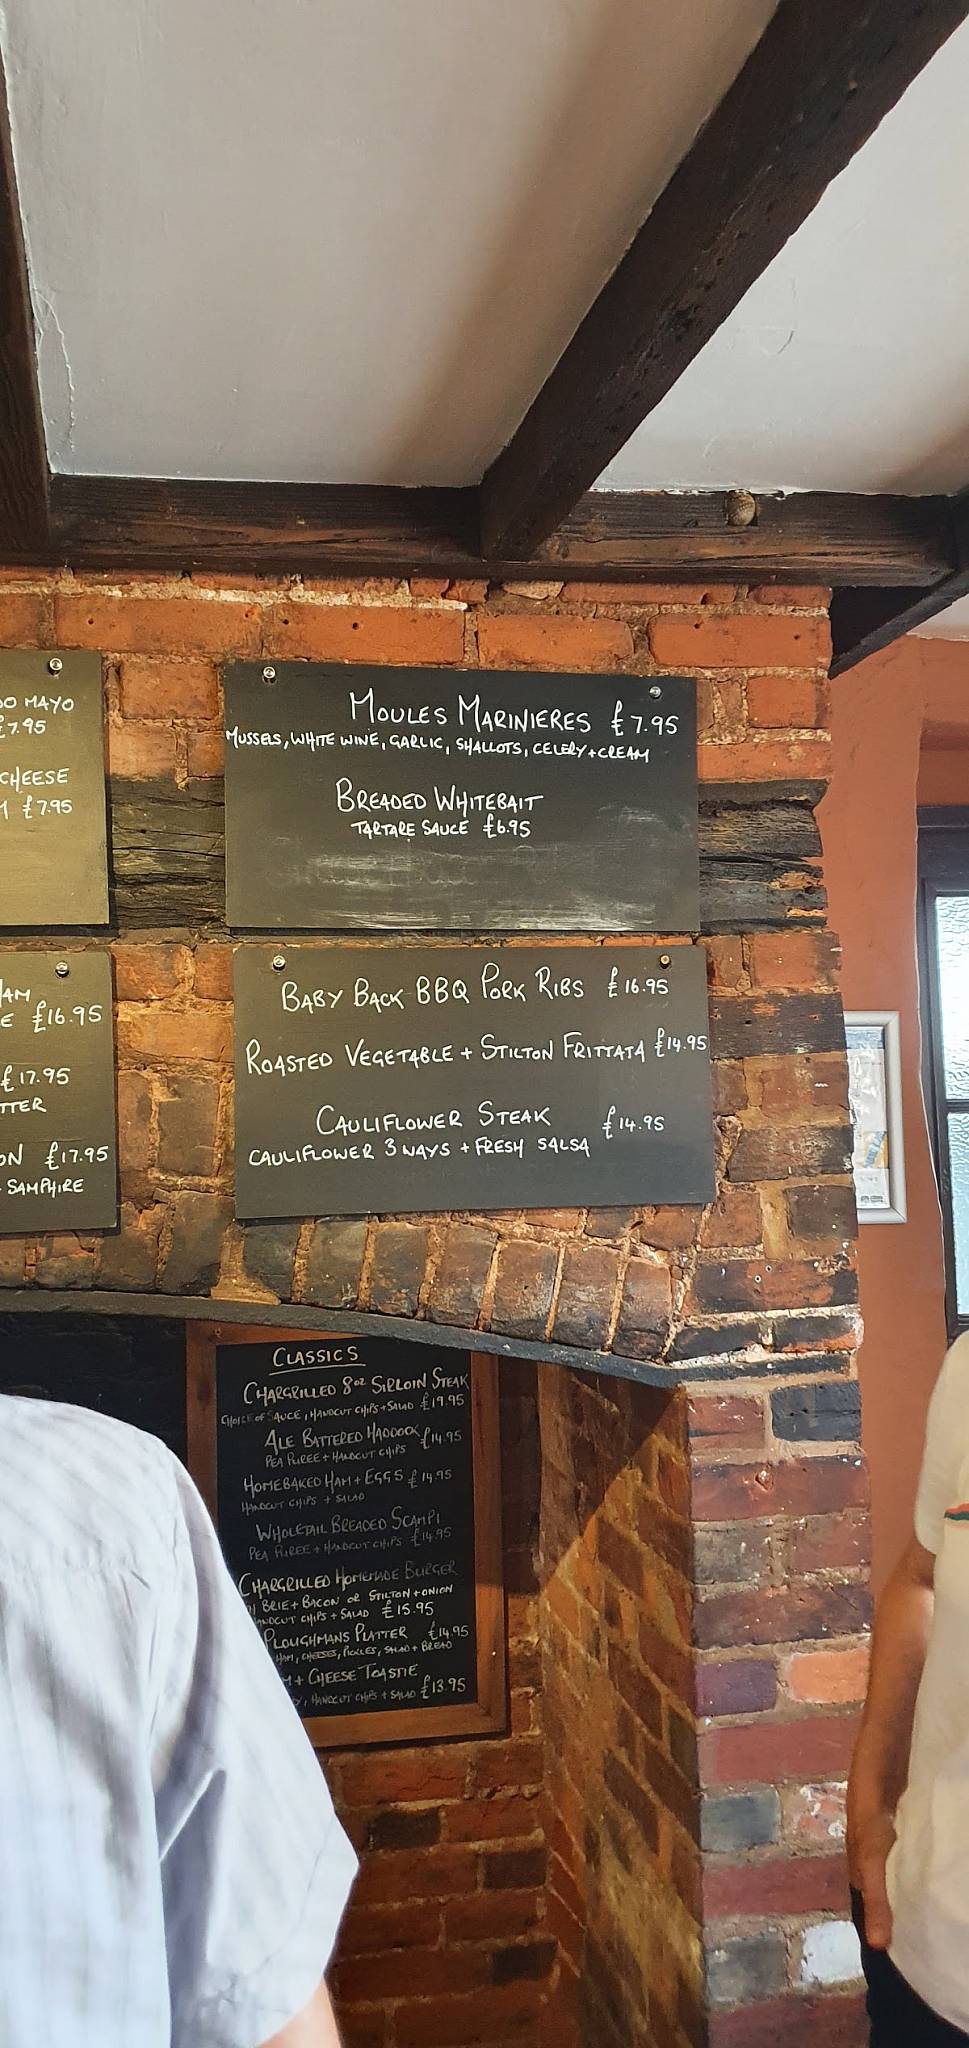 DO MAYO
£7.95
CHEESE
£7.95
MOULES MARINIERES £7.95
MUSSELS, WHITE WINE, GARLIC, SHALLOTS, CELERY + CREAM
BREADED WHITEBAIT
TARTARE SAUCE £6.95
AM
E £16.95
£17.95
TTER
ON £17.95
SAMPHIRE
BABY BACK BBQ PORK RIBS £16.95
ROASTED VEGETABLE + STILTON FRITTATA £14.95
CAULIFLOWER STEAK £14.95
CAULIFLOWER 3 WAYS + FRESH SALSA
CLASSICS
CHARGRILLED 8oz SIRLOIN STEAK
CHOICE OF SAUCE, HANDCUT CHIPS + SALAD £19.95
ALE BATTERED HADDOCK £14.95
PEA PUREE + HANDCUT CHIPS
HOMEBAKED HAM + EGGS £14.95
HANDCUT CHIPS + SALAD
WHOLETAIL BREADED SCAMPI
PEA PUREE + HANDCUT CHIPS £14.95
CHARGRILLED HOMEMADE BURGER
BRIE + BACON OR STILTON + ONION
HANDCUT CHIPS + SALAD £15.95
PLOUGHMANS PLATTER £14.95
HAM, CHEESES, PICKLES, SALAD + BREAD
M + CHEESE TOASTIE
HANDCUT CHIPS + SALAD £13.95